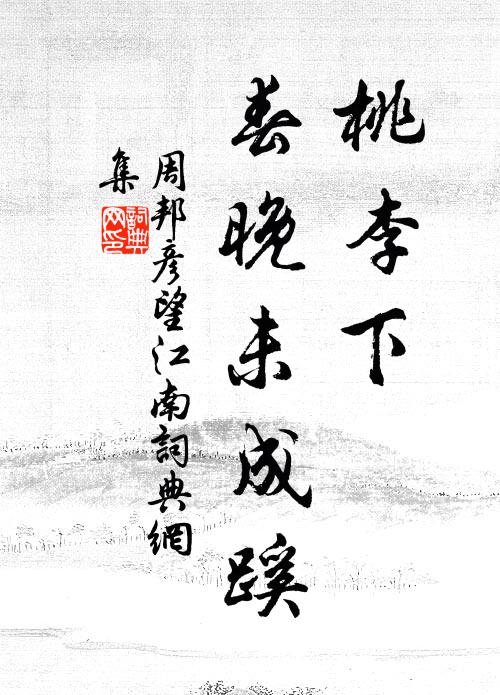 桃李下
春晚未成蹊
周邦彥望江南詞典網
集
詞典网印